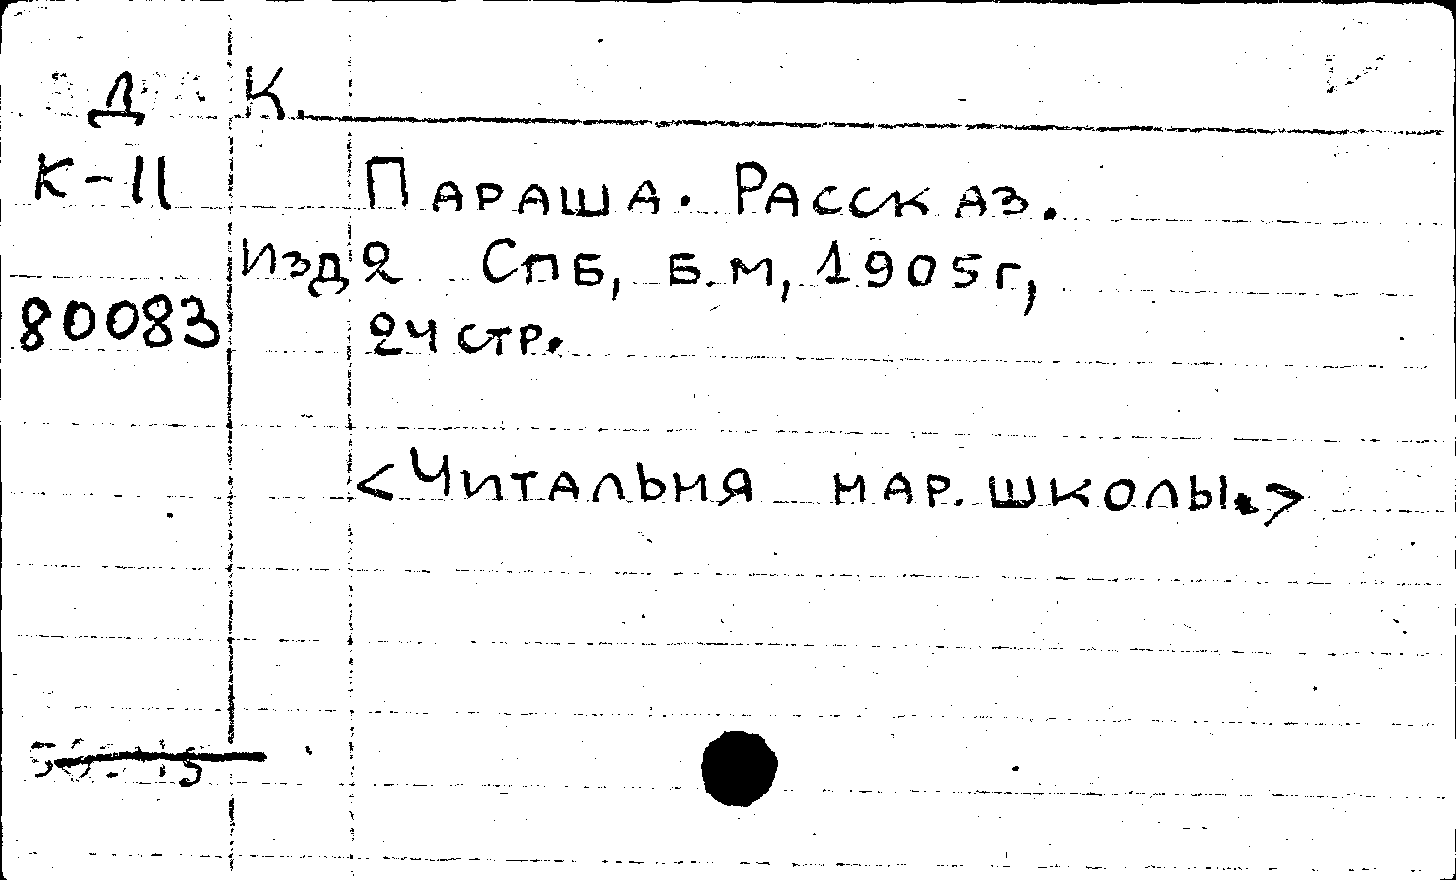 Д К.
К-11 Параша. Рассказ.
Изд 2 Спб, Б.м, 1905г,
80083
24 стр.
<Читальня нар. школы.>